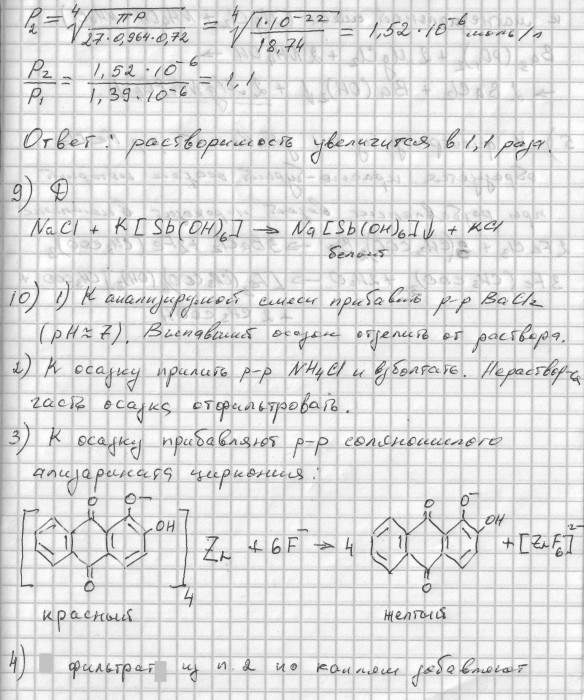 P₂ = ⁴√(ПР / 27·0,964·0,72) = ⁴√(1·10⁻²² / 18,74) = 1,52·10⁻⁶ моль/л
P₂/P₁ = 1,52·10⁻⁶ / 1,39·10⁻⁶ = 1,1
Ответ: растворимость увеличится в 1,1 раза.
9) Д
NaCl + K[Sb(OH)₆] → Na[Sb(OH)₆]↓ + KCl
белый
10) 1) К анализируемой смеси прибавить р-р BaCl₂
(pH≈7). Выпавший осадок отделить от раствора.
2) К осадку прилить р-р NH₄Cl и взболтать. Нераствор-ся
часть осадка отфильтровать.
3) К осадку прибавляют р-р солянокислого
ализарината циркония:
O O⁻ OH O
[ ]₄ Zr + 6F⁻ → 4
O O⁻ OH O
+ [ZrF₆]²⁻
красный жёлтый
4) фильтрат из п. 2 по каплям добавляют